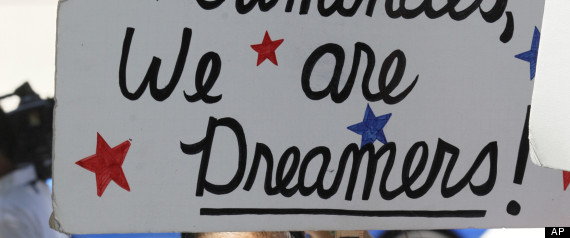 We are
Dreamers!
AP